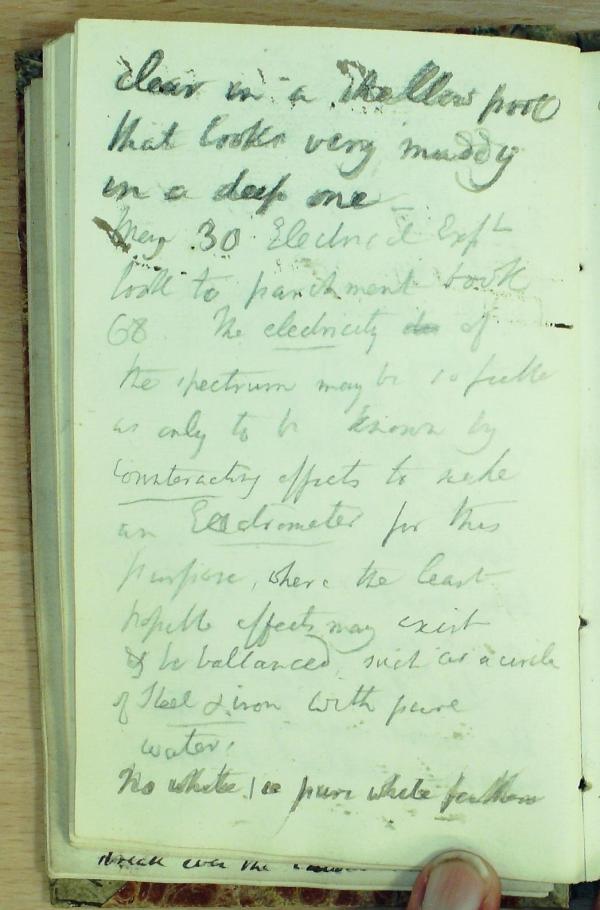 clear in a shallow pool
that looks very muddy
in a deep one
May 30 Electrical Expt
look to parchment book
68 The electricity of
the spectrum may be so feeble
as only to be known by
counteracting effects to make
an Electrometer for this
purpose, where the least
possible effects may exist
& be ballanced such as a circle
of Steel & iron with pure
water.
No white is pure white
break over the